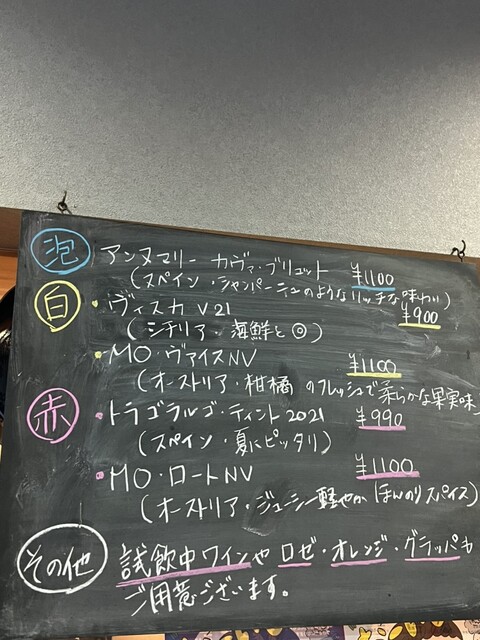 泡 アンヌマリー カヴァ・ブリュット ¥1100
(スペイン・シャンパーニュのようなリッチな味わい)
白 ・ヴィスカ V21 ¥900
(シチリア・海鮮と◎)
・MO・ヴァイスNV ¥1100
(オーストリア・柑橘のフレッシュで柔らかな果実味
赤 ・トラゴラルゴ・ティント2021 ¥990
(スペイン・夏にピッタリ)
・MO・ロートNV ¥1100
(オーストリア・ジューシー軽やか ほんのりスパイス)
その他 試飲中ワインや ロゼ・オレンジ・グラッパも
ご用意ございます。